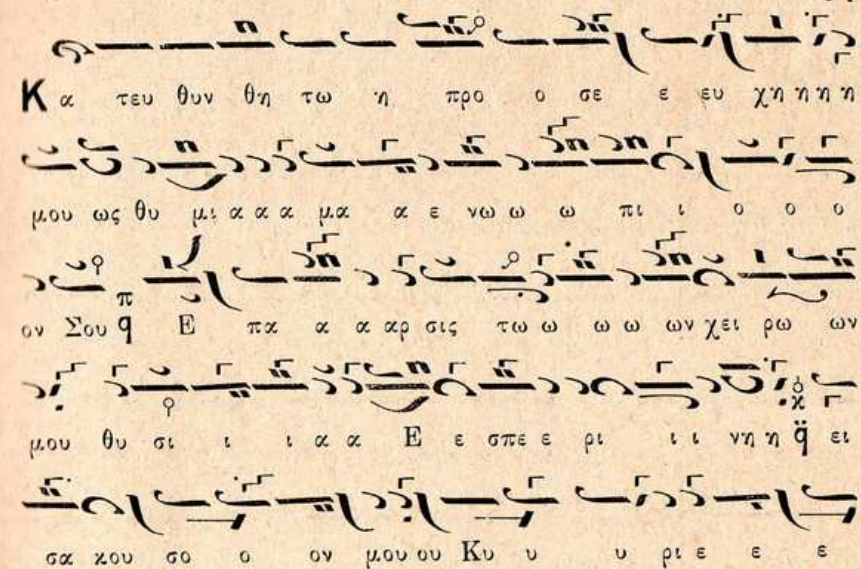 Κα τευ θυν θη τω η προ ο σε ε ευ χη η η η
μου ως θυ μι α α α μα α ε νω ω ω πι ι ο ο ο
ον Σου π q Ε πα α α αρ σις τω ω ω ω ων χει ρω ων
μου θυ σι ι ι α α Ε ε σπε ε ρι ι ι νη η q ει
σα κου σο ο ον μου ου Κυ υ υ ρι ε ε ε